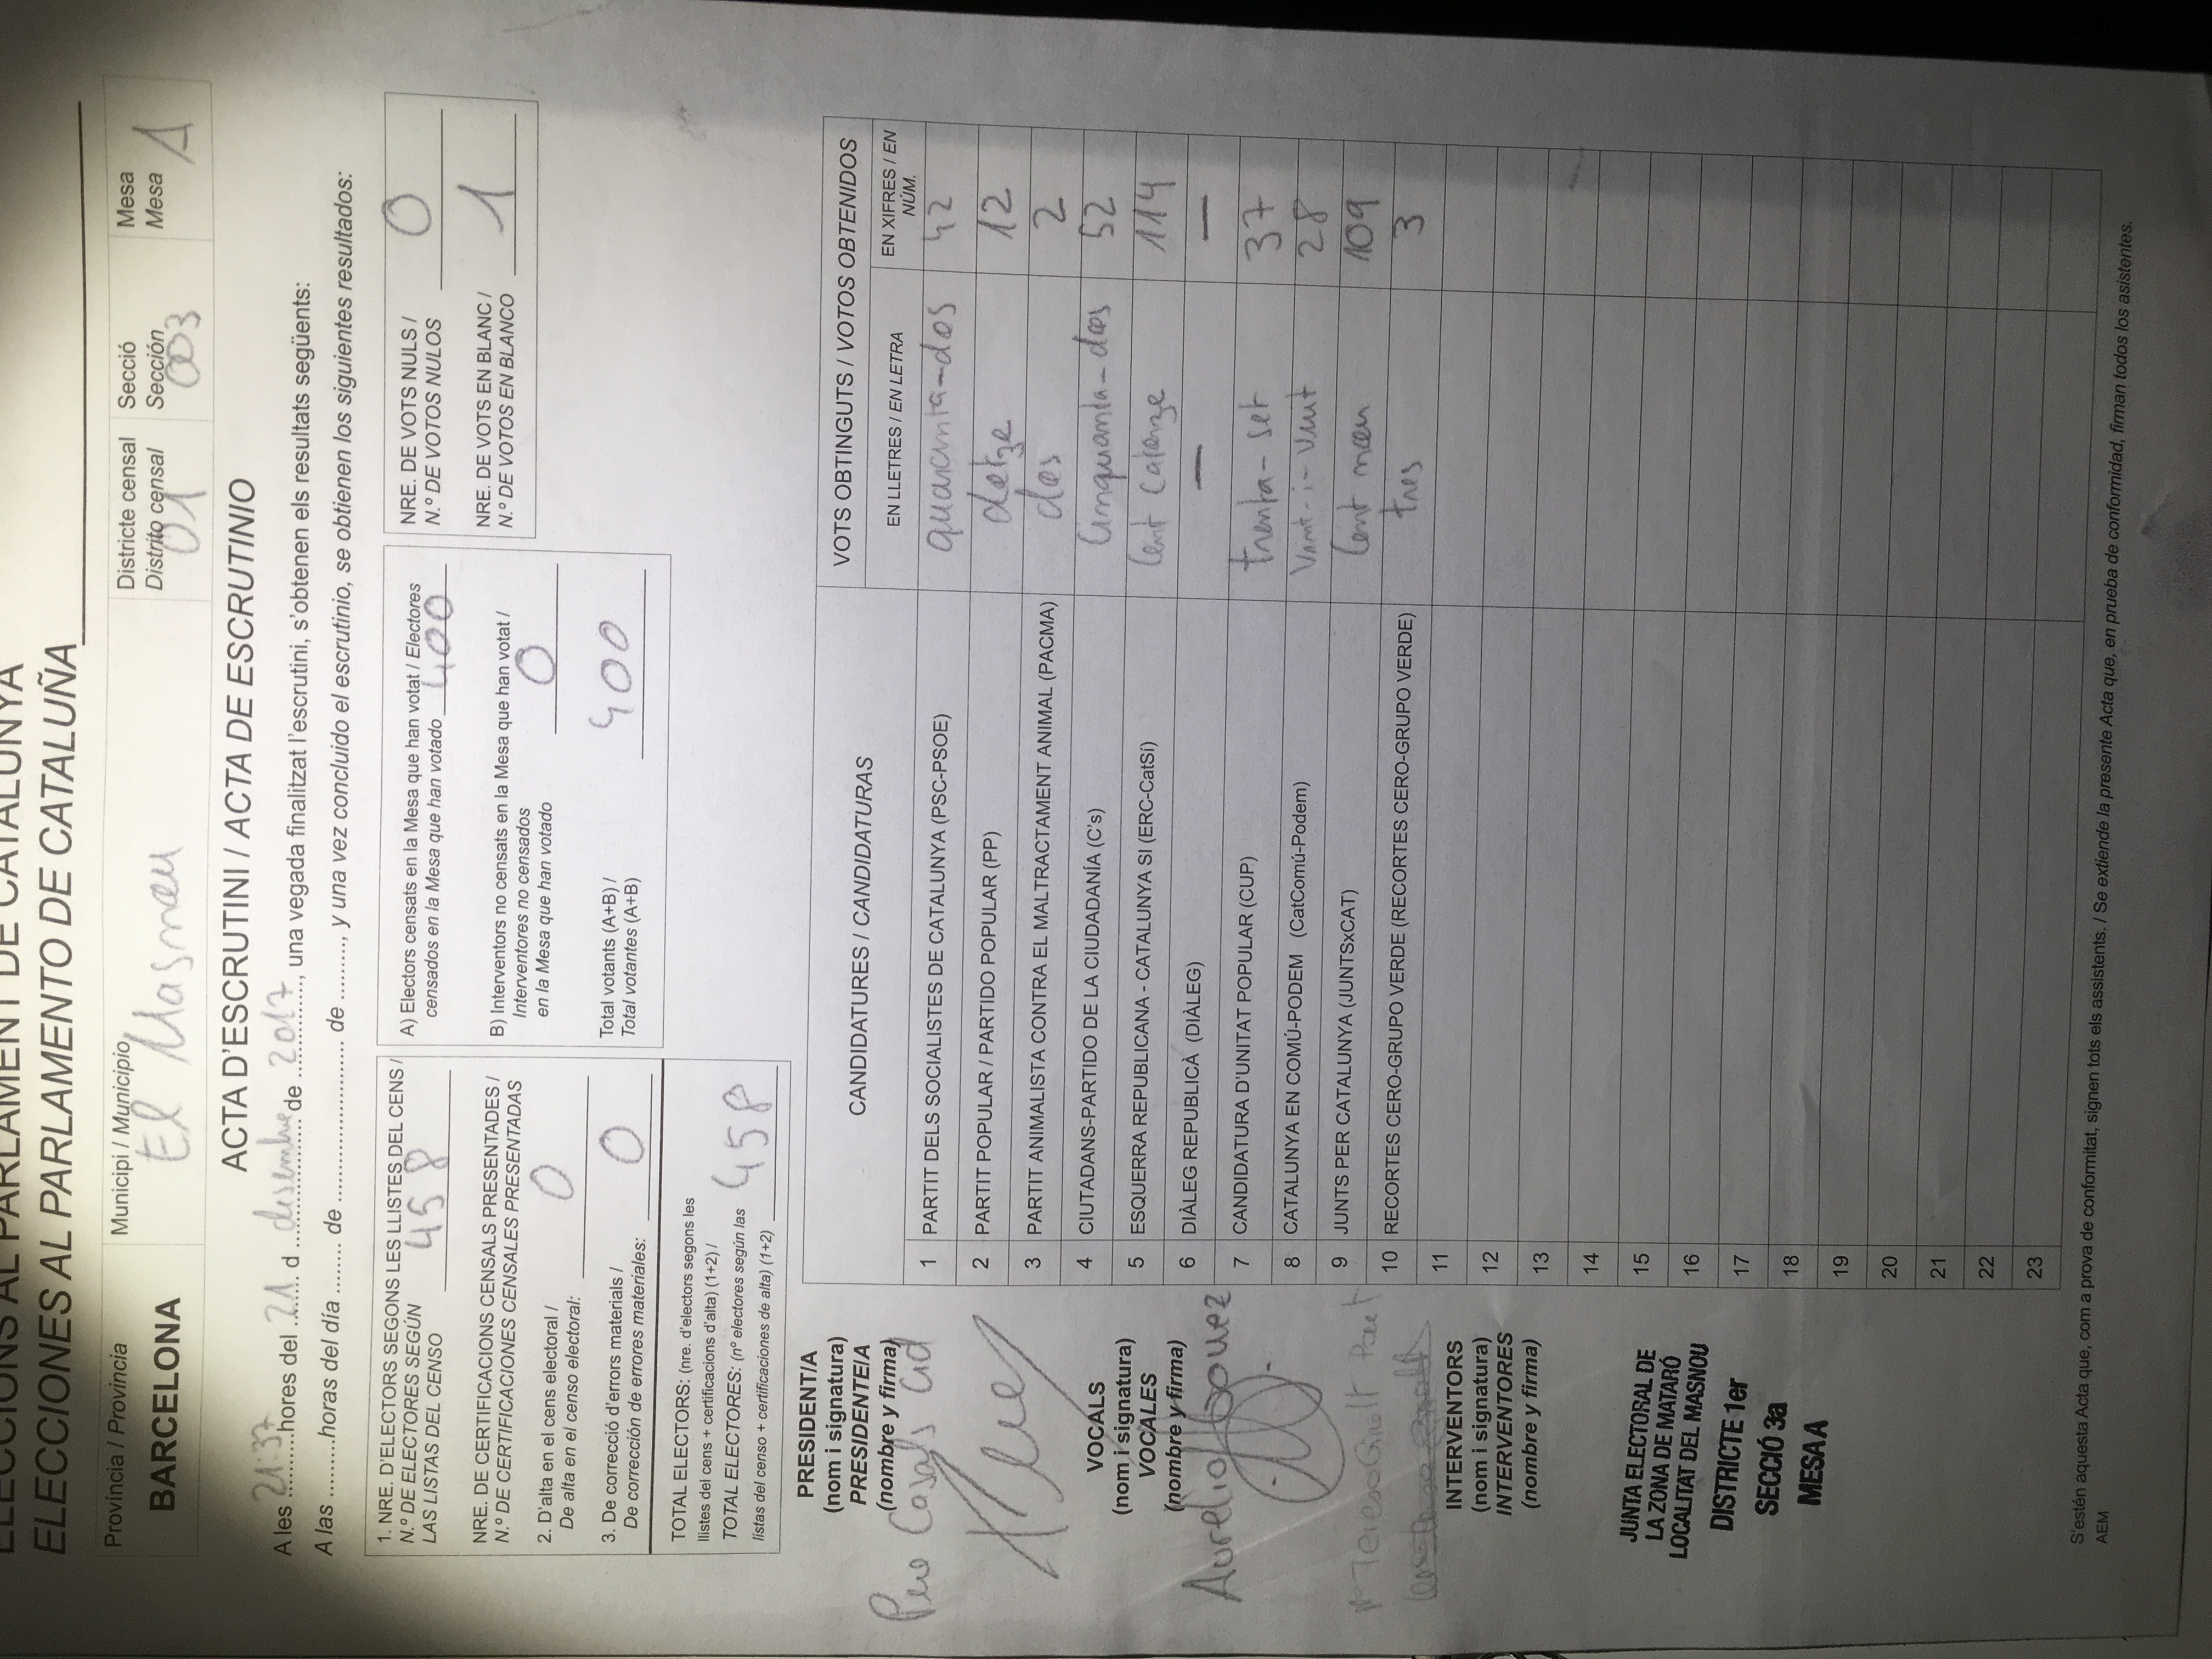 ELECCIONS AL PARLAMENT DE CATALUNYA
ELECCIONES AL PARLAMENTO DE CATALUÑA
Província / Provincia
BARCELONA
Municipi / Municipio
El Masnou
Districte censal
Distrito censal
01
Secció
Sección
003
Mesa
Mesa
A
ACTA D'ESCRUTINI / ACTA DE ESCRUTINIO
A les 21:37 hores del 21 d desembre de 2017, una vegada finalitzat l'escrutini, s'obtenen els resultats següents:
A las .........horas del día ........ de .......................... de ........., y una vez concluido el escrutinio, se obtienen los siguientes resultados:
1. NRE. D'ELECTORS SEGONS LES LLISTES DEL CENS /
N.º DE ELECTORES SEGÚN
LAS LISTAS DEL CENSO 458
NRE. DE CERTIFICACIONS CENSALS PRESENTADES /
N.º DE CERTIFICACIONES CENSALES PRESENTADAS
2. D'alta en el cens electoral /
De alta en el censo electoral: 0
3. De correcció d'errors materials /
De corrección de errores materiales: 0
TOTAL ELECTORS: (nre. d'electors segons les
llistes del cens + certificacions d'alta) (1+2) /
TOTAL ELECTORES: (nº electores según las
listas del censo + certificaciones de alta) (1+2) 458
A) Electors censats en la Mesa que han votat / Electores
censados en la Mesa que han votado 400
B) Interventors no censats en la Mesa que han votat /
Interventores no censados
en la Mesa que han votado 0
Total votants (A+B) /
Total votantes (A+B) 400
NRE. DE VOTS NULS /
N.º DE VOTOS NULOS 0
NRE. DE VOTS EN BLANC /
N.º DE VOTOS EN BLANCO 1
PRESIDENT/A
(nom i signatura)
PRESIDENTE/A
(nombre y firma)
Pere Casals Cid
VOCALS
(nom i signatura)
VOCALES
(nombre y firma)
Aurelio
Mª Teresa Giralt
INTERVENTORS
(nom i signatura)
INTERVENTORES
(nombre y firma)
JUNTA ELECTORAL DE
LA ZONA DE MATARÓ
LOCALITAT DEL MASNOU
DISTRICTE 1er
SECCIÓ 3a
MESA A
CANDIDATURES / CANDIDATURAS
VOTS OBTINGUTS / VOTOS OBTENIDOS
EN LLETRES / EN LETRA
EN XIFRES / EN
NÚM.
1 PARTIT DELS SOCIALISTES DE CATALUNYA (PSC-PSOE) quaranta-dos 42
2 PARTIT POPULAR / PARTIDO POPULAR (PP) dotze 12
3 PARTIT ANIMALISTA CONTRA EL MALTRACTAMENT ANIMAL (PACMA) dos 2
4 CIUTADANS-PARTIDO DE LA CIUDADANÍA (C's) Cinquanta-dos 52
5 ESQUERRA REPUBLICANA - CATALUNYA SI (ERC-CatSí) Cent Catorze 114
6 DIÀLEG REPUBLICÀ (DIÀLEG) — —
7 CANDIDATURA D'UNITAT POPULAR (CUP) trenta-set 37
8 CATALUNYA EN COMÚ-PODEM (CatComú-Podem) Vint-i-Vuit 28
9 JUNTS PER CATALUNYA (JUNTSxCAT) Cent nou 109
10 RECORTES CERO-GRUPO VERDE (RECORTES CERO-GRUPO VERDE) tres 3
11
12
13
14
15
16
17
18
19
20
21
22
23
S'estén aquesta Acta que, com a prova de conformitat, signen tots els assistents. / Se extiende la presente Acta que, en prueba de conformidad, firman todos los asistentes.
AEM